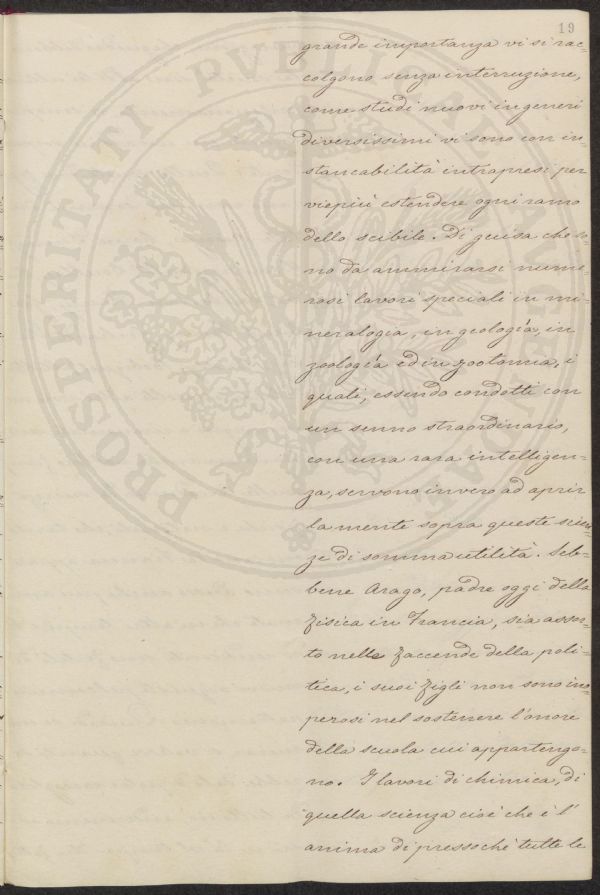 19
grande importanza vi si rac=
colgono senza interruzione,
come studi nuovi in generi
diversissimi vi sono con in=
stancabilità intrapresi per
viepiù estendere ogni ramo
dello scibile. Di guisa che so=
no da ammirarsi nume=
rosi lavori speciali in mi=
neralogia, in geologia, in
zoologia ed in zootomia, i
quali, essendo condotti con
un senno straordinario,
con una rara intelligen=
za, servono invero ad aprir
la mente sopra queste scien=
ze di somma utilità. Seb=
bene Arago, padre oggi della
fisica in Francia, sia assor=
to nelle faccende della poli=
tica, i suoi figli non sono ino=
perosi nel sostenere l'onore
della scuola cui appartengo=
no. I lavori di chimica, di
quella scienza cioè che è l'
anima di pressoché tutte le
PROSPERITATI PVBLICAE